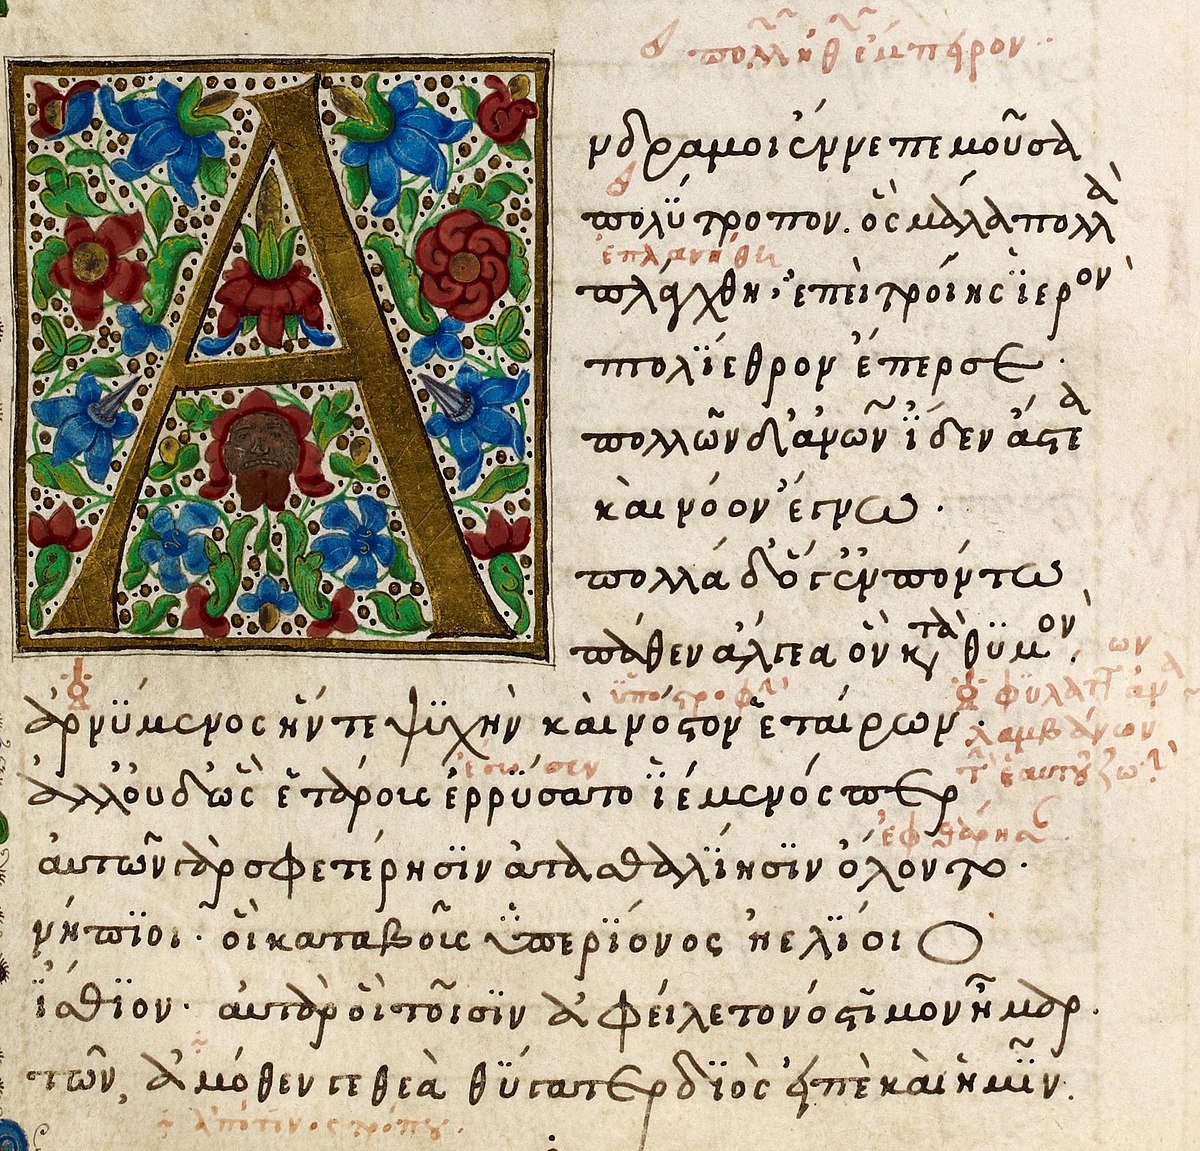 Α
νδρα μοι ἔννεπε μοῦσα
πολύτροπον. ὃς μάλα πολλὰ
ἐπλανήθη
πλάγχθη, ἐπεὶ τροίης ἱερὸν
πτολίεθρον ἔπερσε·
πολλῶν δ' ἀνθρώπων ἴδεν ἄστεα
καὶ νόον ἔγνω·
πολλὰ δ' ὅγ' ἐν πόντῳ
πάθεν ἄλγεα ὃν κατὰ θυμόν.
ἀρνύμενος ἥν τε ψυχὴν καὶ νόστον ἑταίρων·
ἔσωσεν
ἀλλ' οὐδ' ὣς ἑτάρους ἐρρύσατο ἱέμενός περ
ἐφθάρησαν
αὐτῶν γὰρ σφετέρῃσιν ἀτασθαλίῃσιν ὄλοντο·
νήπιοι· οἳ κατὰ βοῦς ὑπερίονος ἠελίοιο
ἤσθιον· αὐτὰρ ὁ τοῖσιν ἀφείλετο νόστιμον ἦμαρ·
τῶν, ἁμόθεν γε θεὰ θύγατερ διὸς εἰπὲ καὶ ἡμῖν.
ἀπό τινος τρόπου.